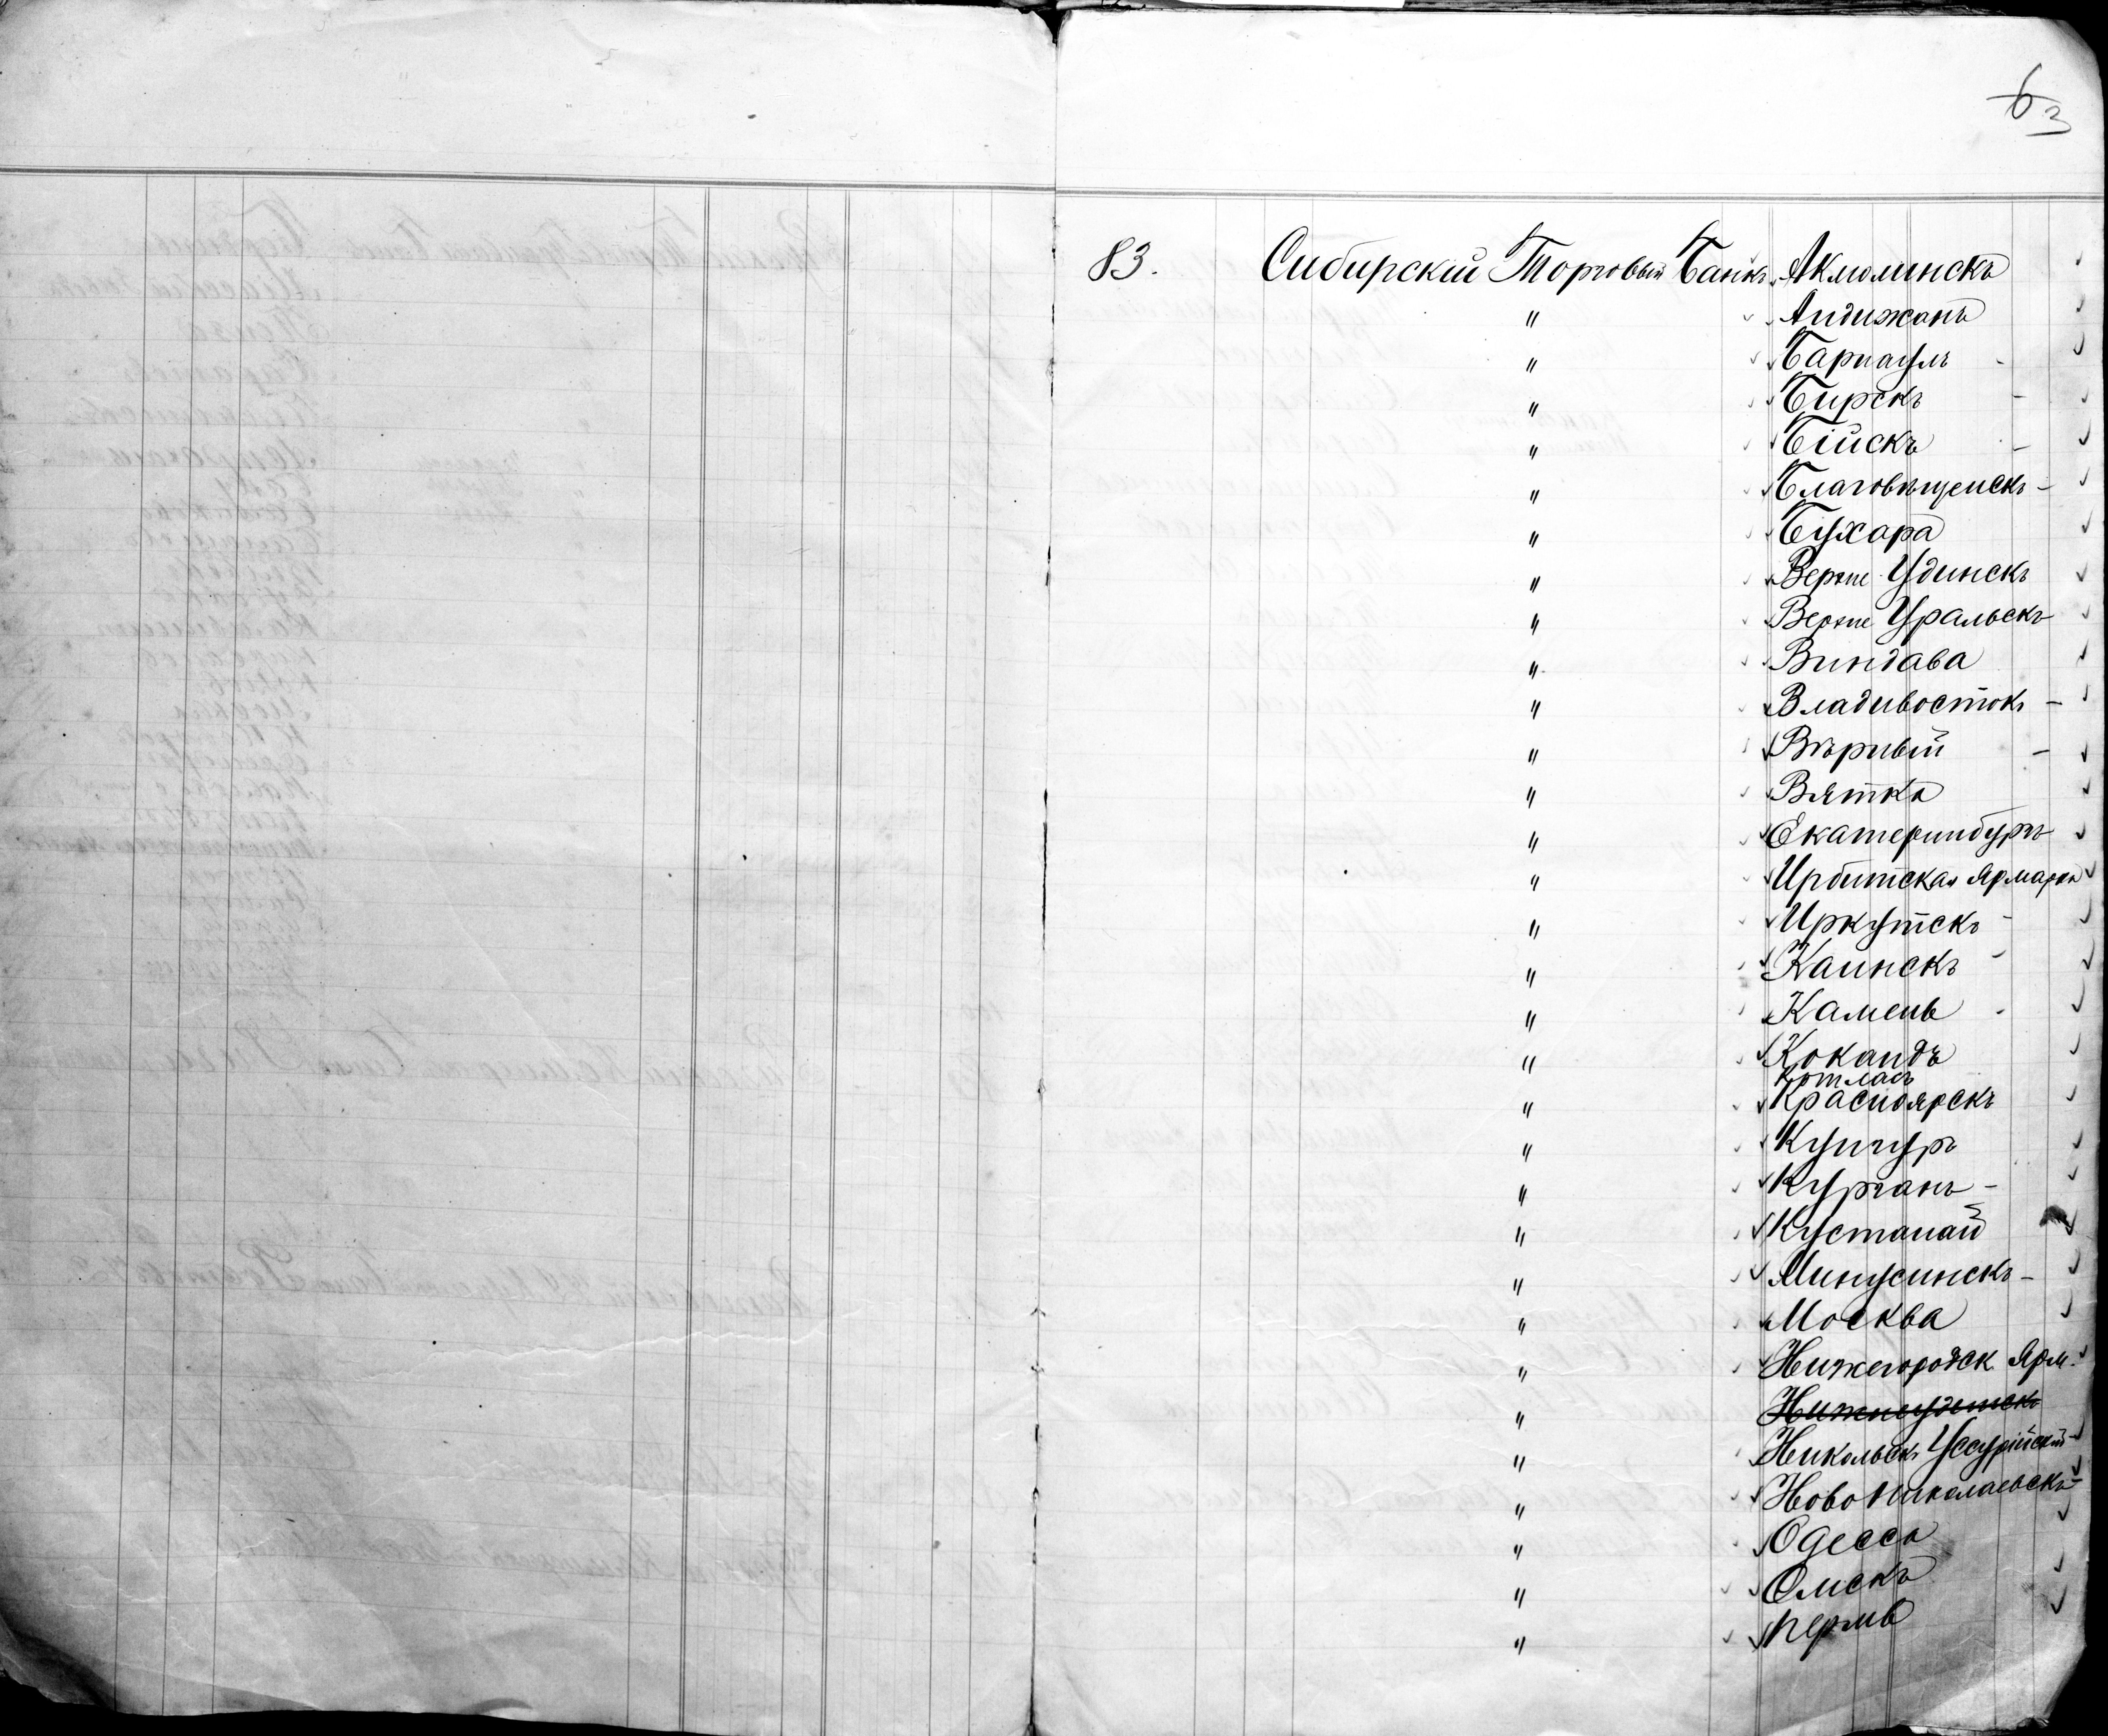 6
3
83. Сибирскій Торговый Банкъ Акмолинскъ
" Андижанъ
" Барнаулъ -
" Бирскъ -
" Бійскъ -
" Благовѣщенскъ -
" Бухара
" Верхне Удинскъ
" Верхне Уральскъ
" Виндава
" Владивостокъ -
" Вѣрный -
" Вятка
" Екатеринбургъ
" Ирбитская Ярмарка
" Иркутскъ -
" Каинскъ -
" Камень -
" Кокандъ
Котласъ
" Красноярскъ
" Кунгуръ
" Курганъ -
" Кустанай
" Минусинскъ -
" Москва
" Нижегородск Ярм.
" Нижнеудинскъ
" Никольскъ Уссурійскій -
" Ново Николаевскъ -
" Одесса
" Омскъ
" Пермь